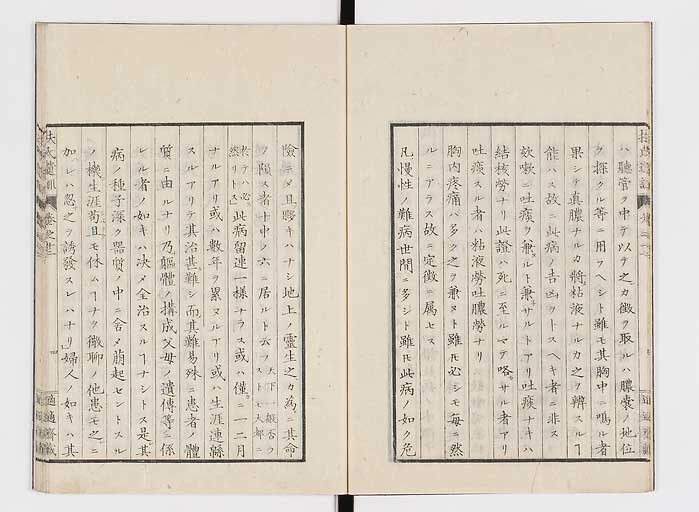 ハ聴管ヲ中テ以テ之カ徴ヲ取ルハ膿嚢ノ地位
ヲ探クル等ニ用フヘシト雖モ其胸中ニ鳴ル者
果シテ真膿ナルカ将粘液ナルカ之ヲ辨スルヿ
能ハス故ニ此病ノ吉凶ヲトスヘキ者ニ非ス
欬嗽ニ吐痰ヲ兼ヌルト兼サルトアリ吐痰ナキハ
結核労ナリ此證ハ死ニ至ルマテ咯サル者アリ
吐痰スル者ハ粘液労吐膿労ナリ
胸内疼痛ハ多ク之ヲ兼ヌト雖𪜈必シモ毎ニ然
ルニアラス故ニ定徴ニ属セス
凡慢性ノ難病世間ニ多シト雖𪜈此病ノ如ク危
険ニメ且夥キハナシ地上ノ靈生之カ為ニ其命
ヲ隕ス者十中ノ六ニ居ルト云フ天下一般否ラ
ストモ大都ニ
於テハ必
然リトス此病留連一様ナラス或ハ僅ニ一二月
ナルアリ或ハ数年ヲ累ヌルアリ或ハ生涯連緜
スルアリテ其治甚難シ而其難易殊ニ患者ノ體
質ニ由ルナリ乃軀體ノ搆成父母ノ遺傳等ニ係
レル者ノ如キハ决メ全治スルヿナシトス是其
病ノ種子深ク器質ノ中ニ舎メ萠起セントスル
ノ機生涯苟且モ休ムヿナク微聊ノ他患モ之ニ
加レハ忽之ヲ誘發スレハナリ婦人ノ如キハ其
適適齋蔵